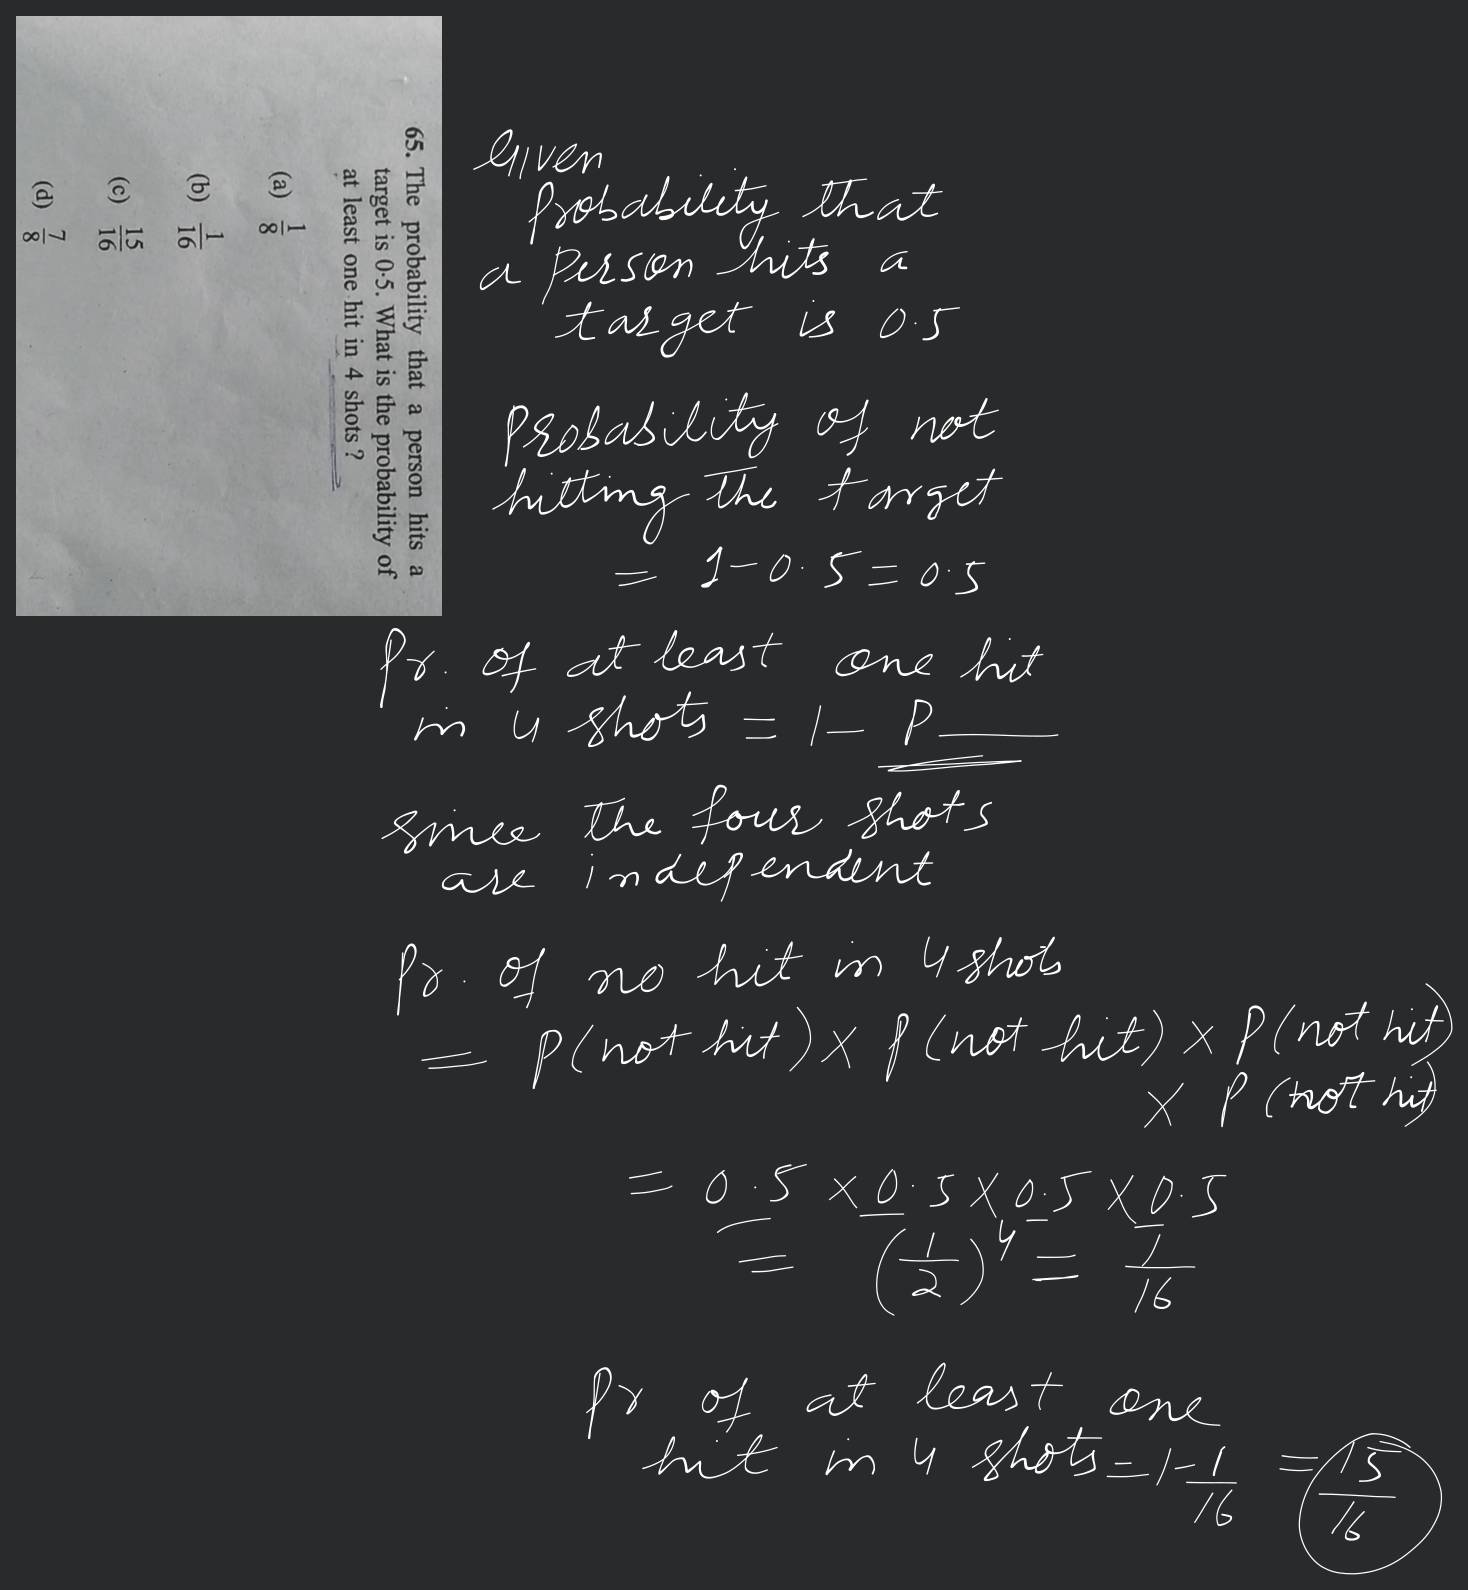 65. The probability that a person hits a
target is 0·5. What is the probability of
at least one hit in 4 shots ?
(a) 1/8
(b) 1/16
(c) 15/16
(d) 7/8
Given
Probability that
a Person hits a
target is 0.5
Probability of not
hitting the target
= 1-0.5 = 0.5
Pr. of at least one hit
in 4 shots = 1- P
since the four shots
are independent
Pr. of no hit in 4 shots
= P(not hit) x P(not hit) x P(not hit)
x P(not hit)
= 0.5 x 0.5 x 0.5 x 0.5
= (1/2)^4 = 1/16
Pr of at least one
hit in 4 shots = 1-1/16 = 15/16